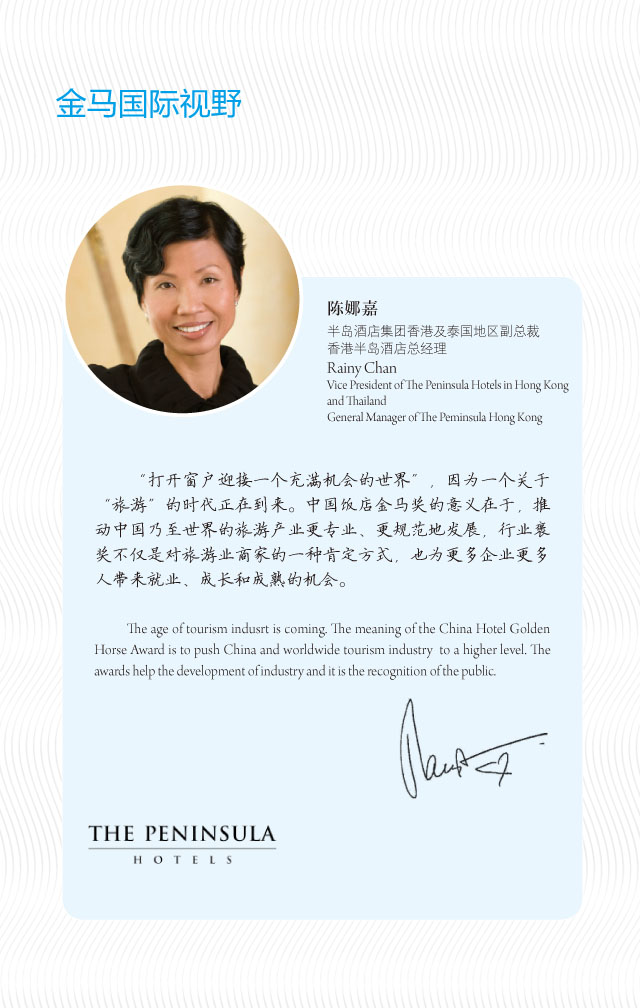 金马国际视野
陈娜嘉
半岛酒店集团香港及泰国地区副总裁
香港半岛酒店总经理
Rainy Chan
Vice President of The Peninsula Hotels in Hong Kong
and Thailand
General Manager of The Peminsula Hong Kong
“打开窗户迎接一个充满机会的世界”，因为一个关于
“旅游”的时代正在到来。中国饭店金马奖的意义在于，推
动中国乃至世界的旅游产业更专业、更规范地发展，行业褒
奖不仅是对旅游业商家的一种肯定方式，也为更多企业更多
人带来就业、成长和成熟的机会。
The age of tourism indusrt is coming. The meaning of the China Hotel Golden
Horse Award is to push China and worldwide tourism industry to a higher level. The
awards help the development of industry and it is the recognition of the public.
THE PENINSULA
HOTELS